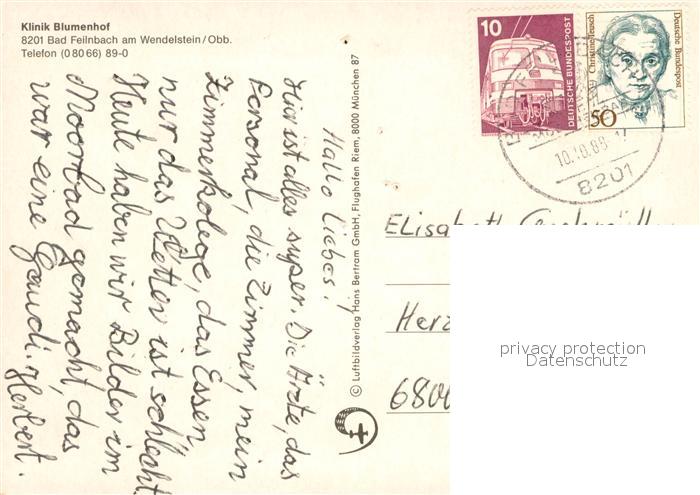 Klinik Blumenhof
8201 Bad Feilnbach am Wendelstein/Obb.
Telefon (0 80 66) 89-0
Hallo Liebes!
Hier ist alles super. Die Ärzte, das
Personal, die Zimmer, mein
Zimmerkolege, das Essen
nur das Wetter ist schlecht.
Heute haben wir Bilder im
Moorbad gemacht, das
war eine Gaudi. Herbert.
© Luftbildverlag Hans Bertram GmbH, Flughafen Riem, 8000 München 87
10
DEUTSCHE BUNDESPOST
Christine Teusch
Deutsche Bundespost
50
10.10.89
8201
Elisabeth
Herz
6800
privacy protection
Datenschutz